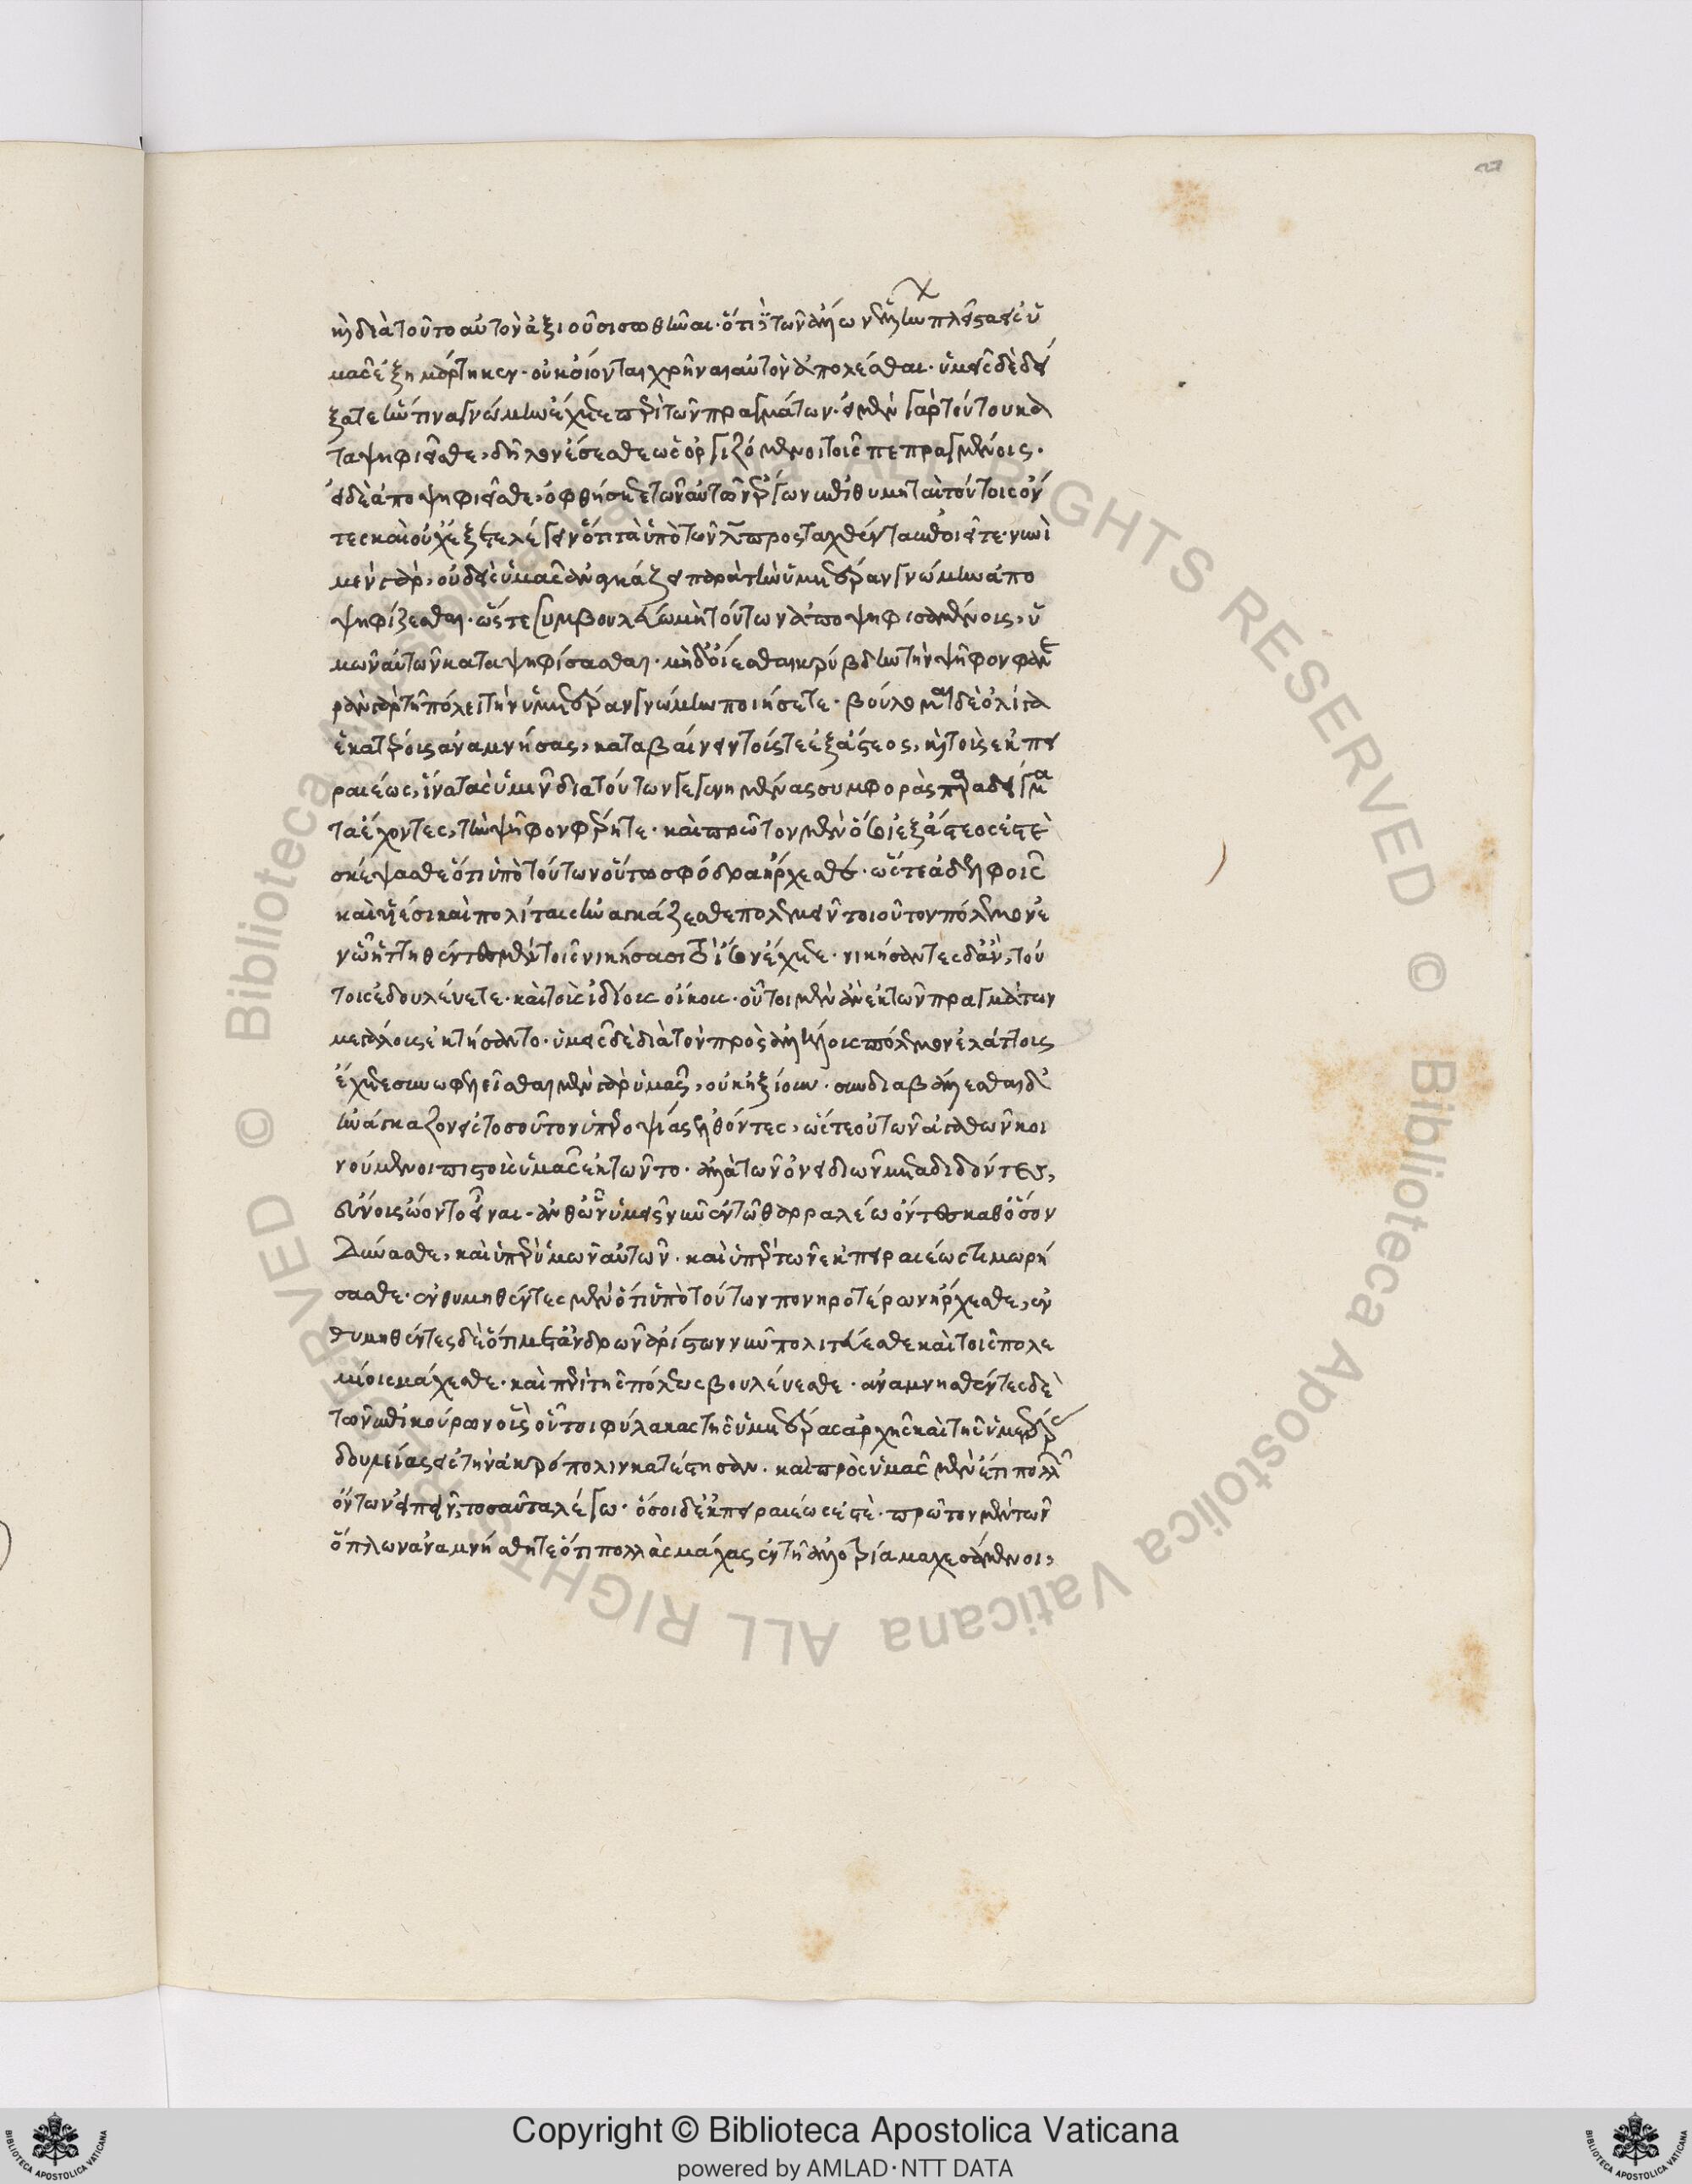 καὶ διὰ τοῦτο αὐτὸν ἀξιοῦσι σωθῆναι· ὅτι τῶν ἄλλων ἑλλήνων πλεῖστα εἰς ὑ
μᾶς ἐξημάρτηκεν· οὐκ οἴονται χρῆναι αὐτὸν ἀπολέσθαι· ὑμεῖς δὲ δεί
ξατε ἥντινα γνώμην ἔχετε περὶ τῶν πραγμάτων· εἰ μὲν γὰρ τούτου κα
ταψηφιεῖσθε, δῆλοι ἔσεσθε ὡς ὀργιζόμενοι τοῖς πεπραγμένοις·
εἰ δὲ ἀποψηφιεῖσθε, ὀφθήσεσθε τῶν αὐτῶν ἔργων ἐπιθυμηταὶ τούτοις ὄν
τες καὶ οὐχ ἕξετε λέγειν ὅτι τὰ ὑπὸ τῶν λ προσταχθέντα ἐποιεῖτε· νυνὶ
μὲν γὰρ, οὐδεὶς ὑμᾶς ἀναγκάζει παρὰ τὴν ὑμετέραν γνώμην ἀπο
ψηφίζεσθαι· ὥστε συμβουλεύω μὴ τούτων ἀποψηφισαμένοις, ὑ
μῶν αὐτῶν καταψηφίσασθαι· μηδ' οἴεσθαι κρύβδην τὴν ψῆφον φανε
ρὰν γὰρ τῇ πόλει τὴν ὑμετέραν γνώμην ποιήσετε· βούλομαι δὲ ὀλίγα
ἑκατέροις ἀναμνήσας, καταβαίνειν τοῖς τε ἐξ ἄστεος, καὶ τοῖς ἐκ πει
ραιέως, ἵνα τὰς ὑμῖν διὰ τούτων γεγενημένας συμφορὰς παραδείγμα
τα ἔχοντες, τὴν ψῆφον φέρητε· καὶ πρῶτον μὲν ὅσοι ἐξ ἄστεος ἐστὲ
σκέψασθε ὅτι ὑπὸ τούτων οὕτω σφόδρα ἤρχεσθε· ὥστε ἀδελφοῖς
καὶ υἱέσι καὶ πολίταις ἠναγκάζεσθε πολεμεῖν τοιοῦτον πόλεμον ἐ
ν ᾧ ἡττηθέντες μὲν τοῖς νικήσασι τὸ ἴσον ἔχετε· νικήσαντες δ' ἂν, τού
τοις ἐδουλεύετε· καὶ τοὺς ἰδίους οἴκους· οὗτοι μὲν ἂν ἐκ τῶν πραγμάτων
μεγάλους ἐκτήσαντο· ὑμεῖς δὲ διὰ τὸν πρὸς ἀλλήλους πόλεμον ἐλάττους
ἔχετε συνωφελεῖσθαι μὲν γὰρ ὑμᾶς, οὐκ ἠξίουν· συνδιαβάλλεσθαι δ'
ἠνάγκαζον εἰς τοσοῦτον ὑπεροψίας ἐλθόντες, ὥστε οὐ τῶν ἀγαθῶν κοι
νούμενοι πιστοὺς ὑμᾶς ἐκτῶντο· ἀλλὰ τῶν ὀνειδῶν μεταδιδόντες,
εὔνους ᾤοντο εἶναι· ἀνθ' ὧν ὑμεῖς νῦν ἐν τῷ θαρραλέῳ ὄντες καθ' ὅσον
δύνασθε, καὶ ὑπὲρ ὑμῶν αὐτῶν· καὶ ὑπὲρ τῶν ἐκ πειραιέως τιμωρή
σασθε· ἐνθυμηθέντες μὲν ὅτι ὑπὸ τούτων πονηροτέρων ἤρχεσθε, ἐν
θυμηθέντες δὲ ὅτι μετ' ἀνδρῶν ἀρίστων νῦν πολιτεύεσθε καὶ τοῖς πολε
μίοις μάχεσθε· καὶ περὶ τῆς πόλεως βουλεύεσθε· ἀναμνησθέντες δὲ
τῶν ἐπικούρων οὓς οὗτοι φύλακας τῆς ὑμετέρας ἀρχῆς καὶ τῆς ὑμετέρας
δουλείας εἰς τὴν ἀκρόπολιν κατέστησαν· καὶ πρὸς ὑμᾶς μὲν ἔτι πολλῶν
ὄντων εἰπεῖν, τοσαῦτα λέγω· ὅσοι δ' ἐκ πειραιέως ἐστὲ· πρῶτον μὲν τῶν
ὅπλων ἀναμνήσθητε ὅτι πολλὰς μάχας ἐν τῇ ἀλλοτρίᾳ μαχεσάμενοι,
© Biblioteca Apostolica Vaticana ALL RIGHTS RESERVED © Biblioteca Apostolica Vaticana ALL RIGHTS RESERVED
Copyright © Biblioteca Apostolica Vaticana
powered by AMLAD·NTT DATA
BIBLIOTECA APOSTOLICA VATICANA
BIBLIOTECA APOSTOLICA VATICANA